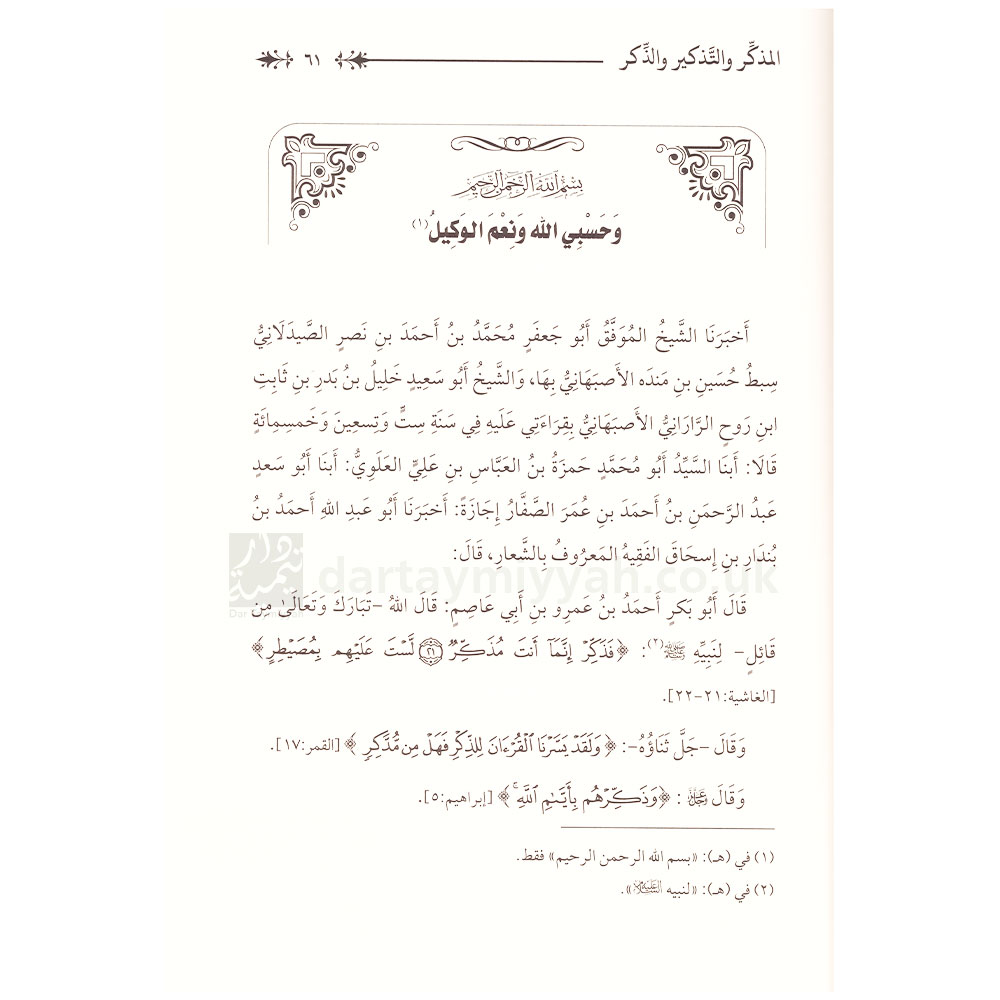 المذكِّر والتَّذكير والذِّكر ٦١
بِسْمِ اللَّهِ الرَّحْمَنِ الرَّحِيمِ
وَحَسْبِي الله وَنِعْمَ الوَكِيلُ(١)
أَخبَرَنَا الشَّيخُ المُوَفَّقُ أَبُو جَعفَرٍ مُحَمَّدُ بنُ أَحمَدَ بنِ نَصرٍ الصَّيدَلَانِيُّ
سِبطُ حُسَينِ بنِ مَندَه الأَصبَهَانِيُّ بِهَا، وَالشَّيخُ أَبُو سَعِيدٍ خَلِيلُ بنُ بَدرِ بنِ ثَابِتِ
ابنِ رَوحٍ الرَّارَانِيُّ الأَصبَهَانِيُّ بِقِرَاءَتِي عَلَيهِ فِي سَنَةِ سِتٍّ وَتِسعِينَ وَخَمسِمِائَةٍ
قَالَا: أَبنَا السَّيِّدُ أَبُو مُحَمَّدٍ حَمزَةُ بنُ العَبَّاسِ بنِ عَلِيٍّ العَلَوِيُّ: أَبنَا أَبُو سَعدٍ
عَبدُ الرَّحمَنِ بنُ أَحمَدَ بنِ عُمَرَ الصَّفَّارُ إِجَازَةً: أَخبَرَنَا أَبُو عَبدِ اللهِ أَحمَدُ بنُ
بُندَارِ بنِ إِسحَاقَ الفَقِيهُ المَعرُوفُ بِالشَّعارِ، قَالَ:
dartaymiyyah.co.uk
قَالَ أَبُو بَكرٍ أَحمَدُ بنُ عَمرِو بنِ أَبِي عَاصِمٍ: قَالَ اللهُ -تَبَارَكَ وَتَعَالَىٰ مِن
قَائِلٍ- لِنَبِيِّهِ ﷺ(٢): ﴿فَذَكِّرْ إِنَّمَآ أَنتَ مُذَكِّرٌ ٢١ لَّسْتَ عَلَيْهِم بِمُصَيْطِرٍ﴾
[الغاشية:٢١-٢٢].
وَقَالَ -جَلَّ ثَنَاؤُهُ-: ﴿وَلَقَدْ يَسَّرْنَا ٱلْقُرْءَانَ لِلذِّكْرِ فَهَلْ مِن مُّدَّكِرٍ﴾ [القمر:١٧].
وَقَالَ ﷻ: ﴿وَذَكِّرْهُم بِأَيَّىٰمِ ٱللَّهِ ۚ﴾ [إبراهيم:٥].
(١) في (هـ): «بسم الله الرحمن الرحيم» فقط.
(٢) في (هـ): «لنبيه ».